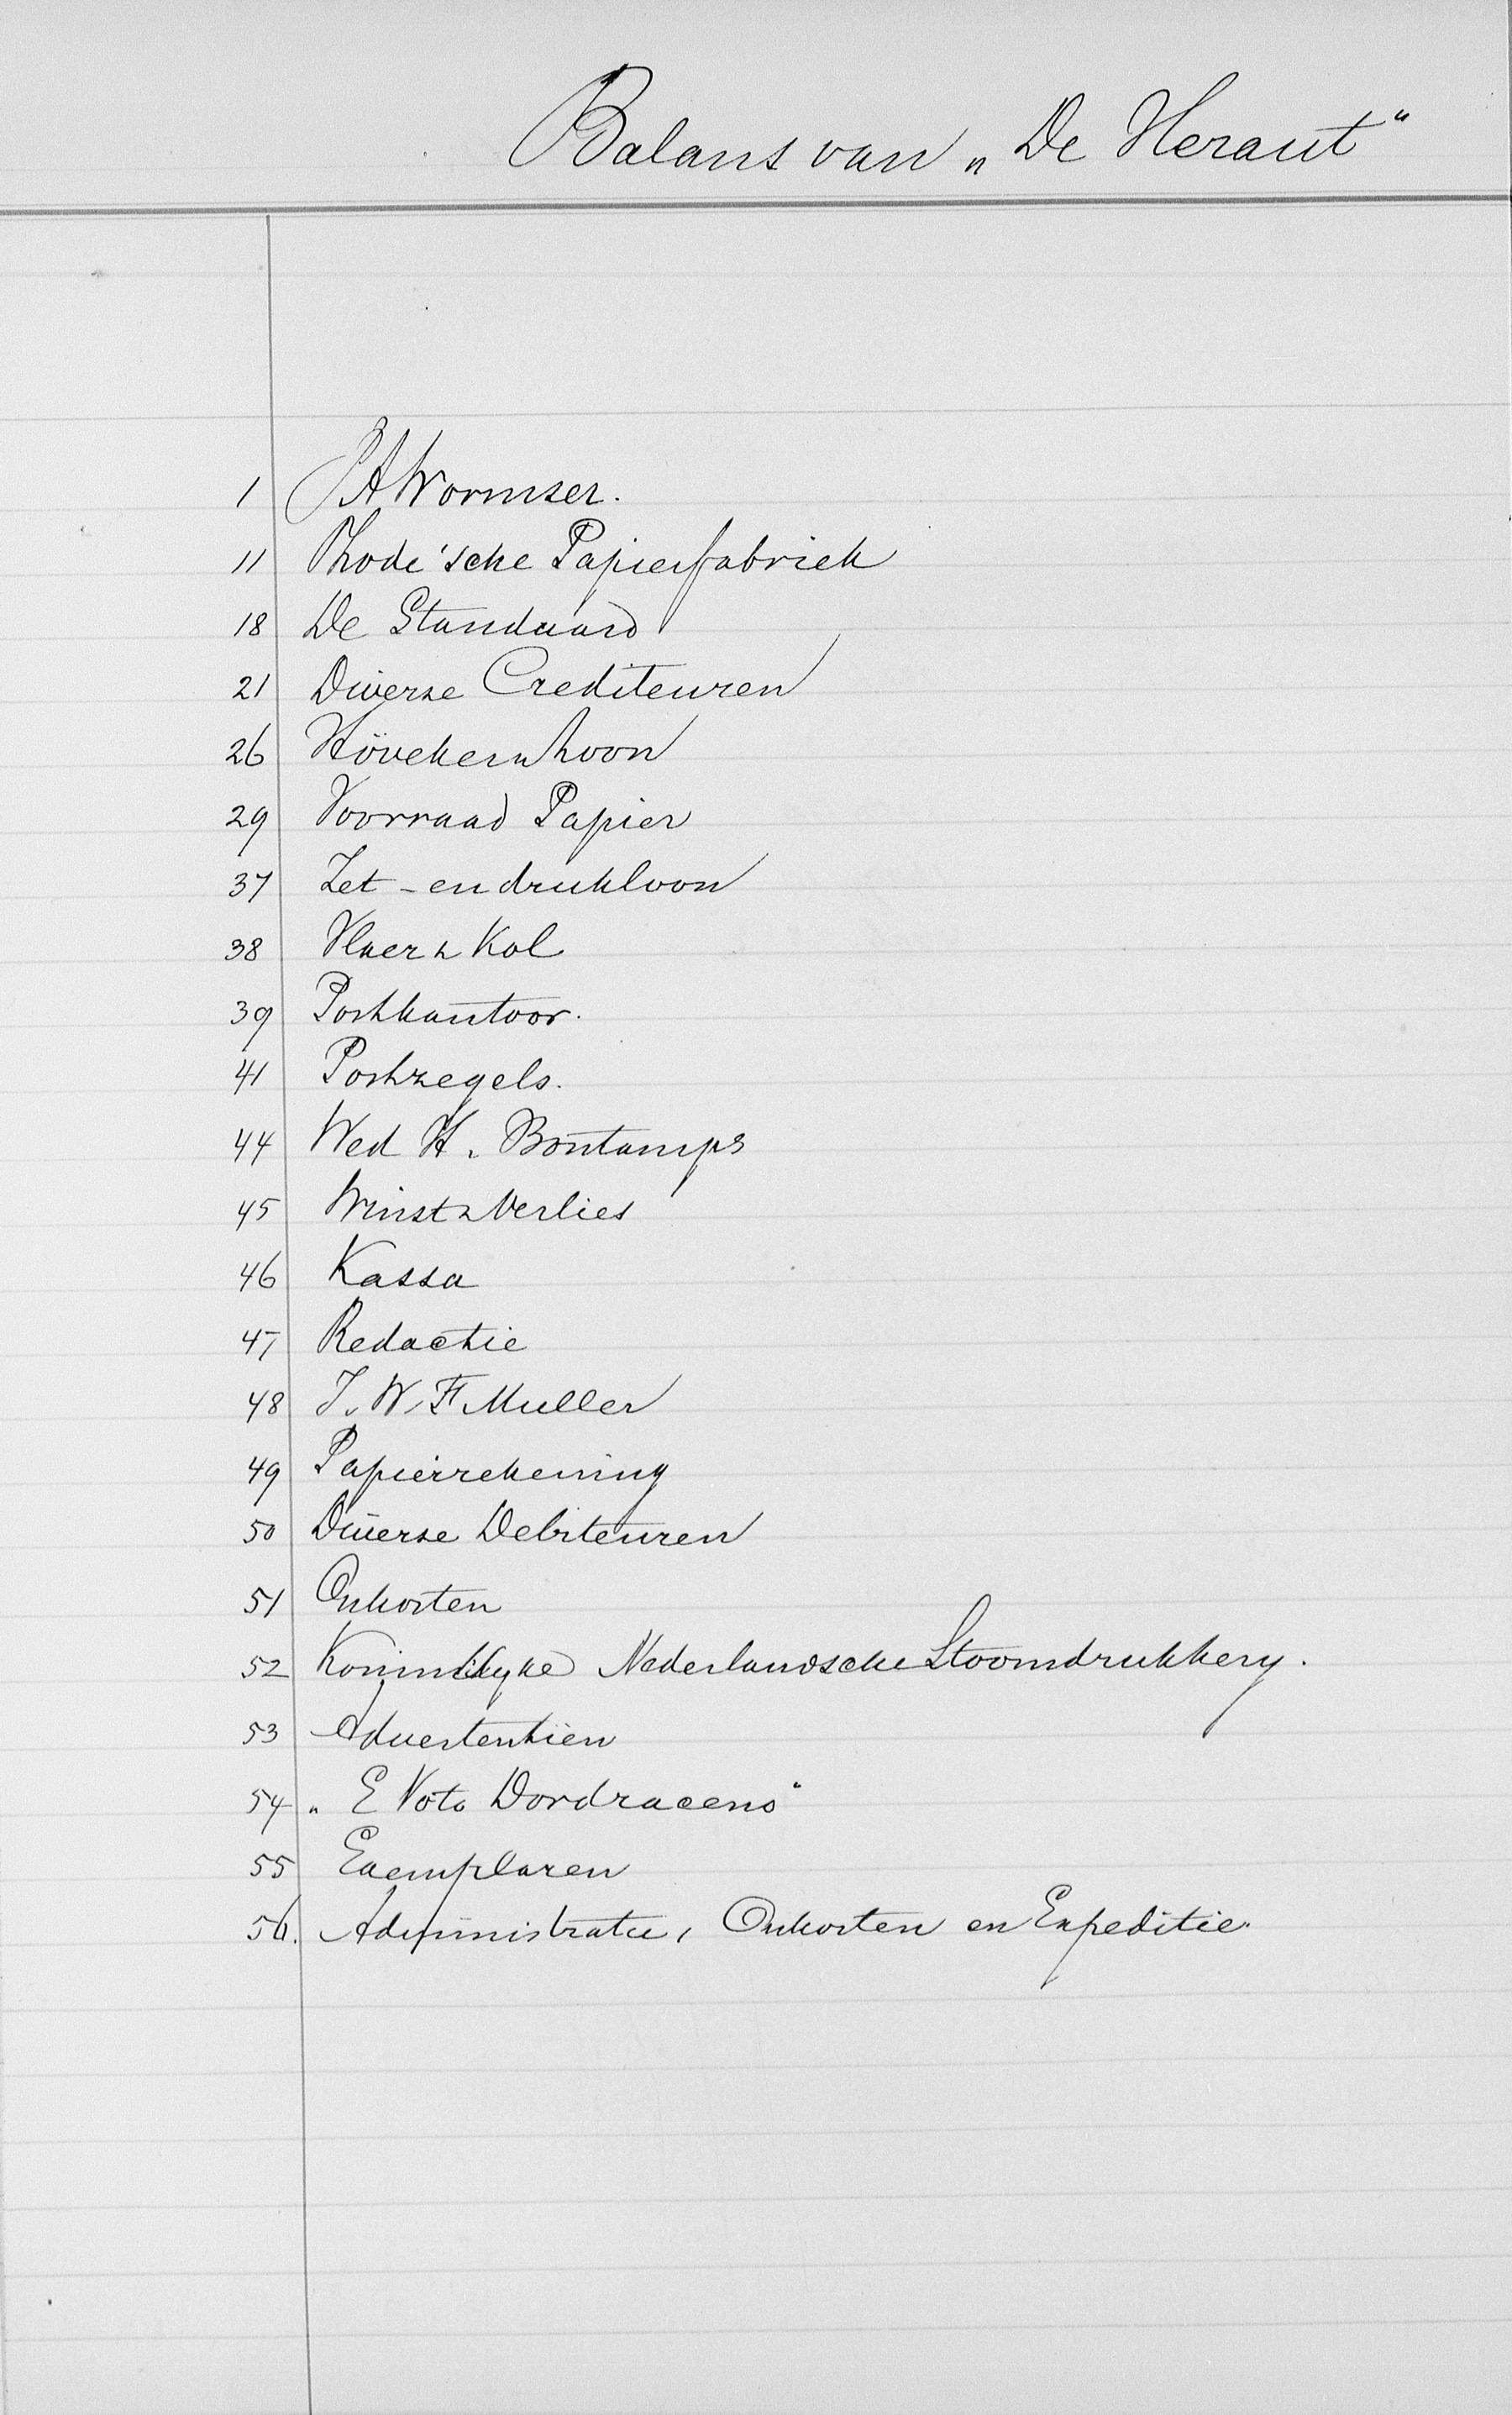 Balans van „De Heraut"
1 J A Wormser.
11 Rhode'sche Papierfabriek
18 De Standaard
21 Diverse Crediteuren
26 Höveker & Zoon
29 Voorraad Papier
37 Zet - en drukloon
38 Vlaer & Kol
39 Postkantoor.
41 Postzegels.
44 Wed H. Bontamps
45 Winst & Verlies
46 Kassa
47 Redactie
48 J. W. F. Muller
49 Papierrekening
50 Diverse Debiteuren
51 Onkosten
52 Koninklyke Nederlandsche Stoomdrukkery.
53 Advertentiën
54 „E Voto Dordraceno"
55 Exemplaren
56. Administratie, Onkosten en Expeditie.